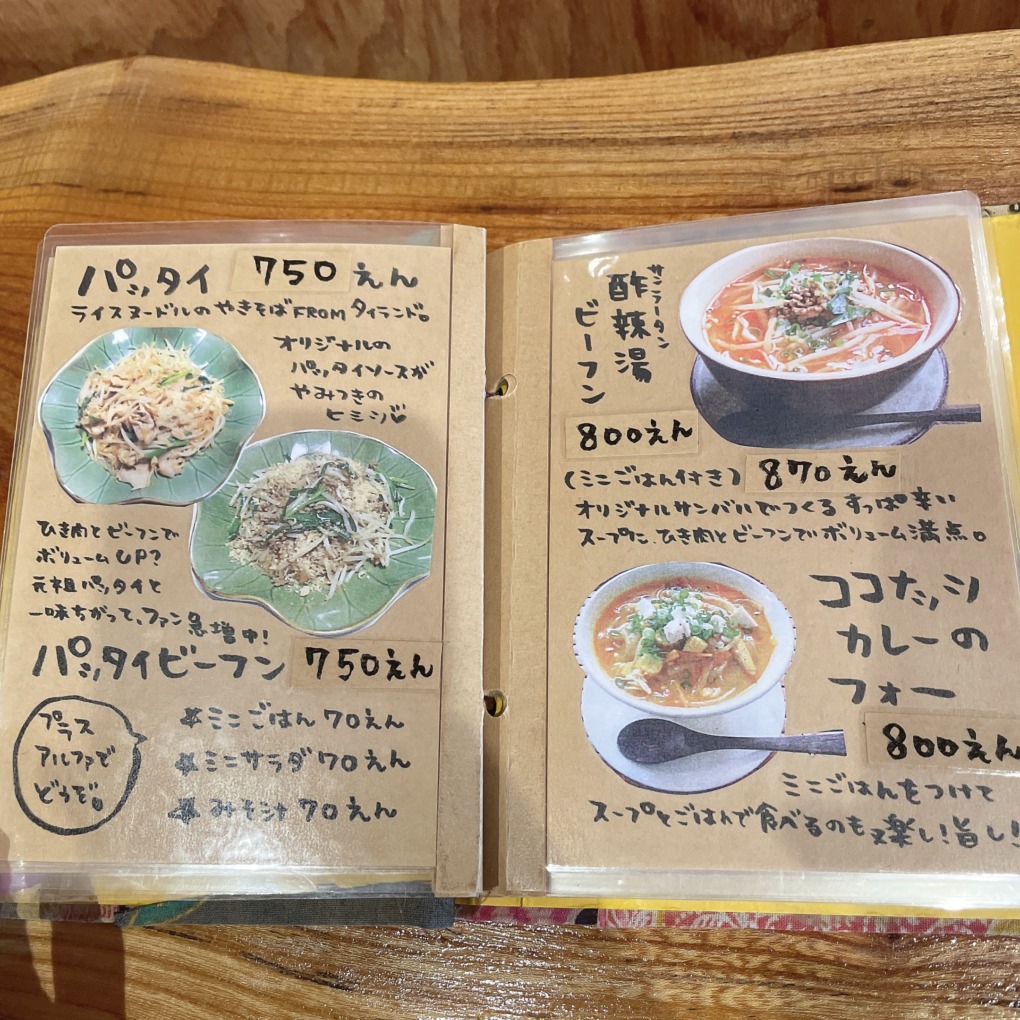 パッタイ 750えん
ライスヌードルのやきそばFROMタイランド。
オリジナルの
パッタイソースが
やみつきの
ヒミツ♡
ひき肉とビーフンで
ボリュームUP?
元祖パッタイと
一味ちがって、ファン急増中!
パッタイビーフン 750えん
プラス
アルファで
どうぞ。
ミニごはん 70えん
ミニサラダ 70えん
みそ汁 70えん
サンラータン
酢辣湯
ビーフン
800えん
(ミニごはん付き) 870えん
オリジナルサンバルでつくるすっぱ辛い
スープに、ひき肉とビーフンでボリューム満点。
ココナッツ
カレーの
フォー
800えん
ミニごはんをつけて
スープとごはんで食べるのも又楽し!旨し!